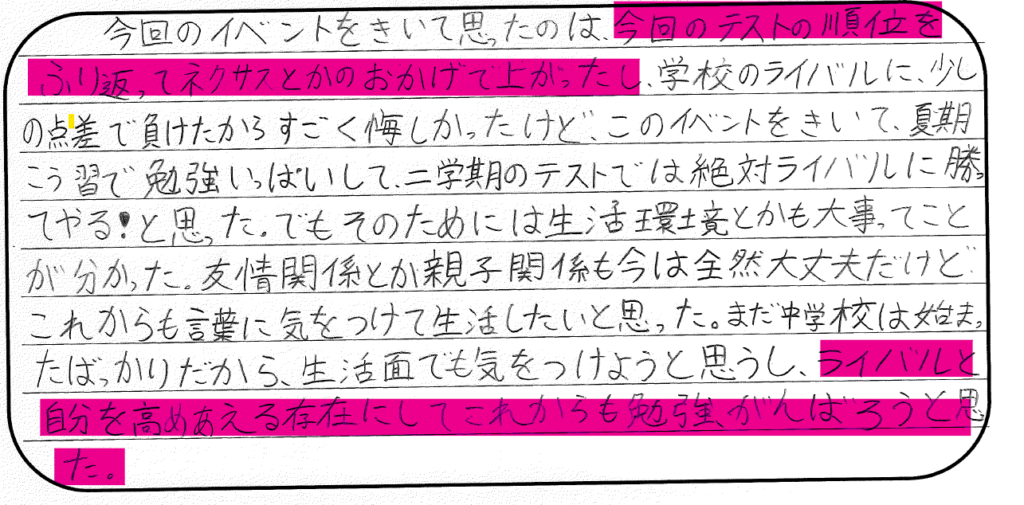 今回のイベントをきいて思ったのは、今回のテストの順位を
ふり返ってネクサスとかのおかげで上がったし、学校のライバルに、少し
の点差で負けたからすごく悔しかったけど、このイベントをきいて、夏期
こう習で勉強いっぱいして、二学期のテストでは絶対ライバルに勝っ
てやる!と思った。でもそのためには生活環境とかも大事ってこと
が分かった。友情関係とか親子関係も今は全然大丈夫だけど、
これからも言葉に気をつけて生活したいと思った。まだ中学校は始まっ
たばっかりだから、生活面でも気をつけようと思うし、ライバルと
自分を高めあえる存在にしてこれからも勉強、がんばろうと思っ
た。